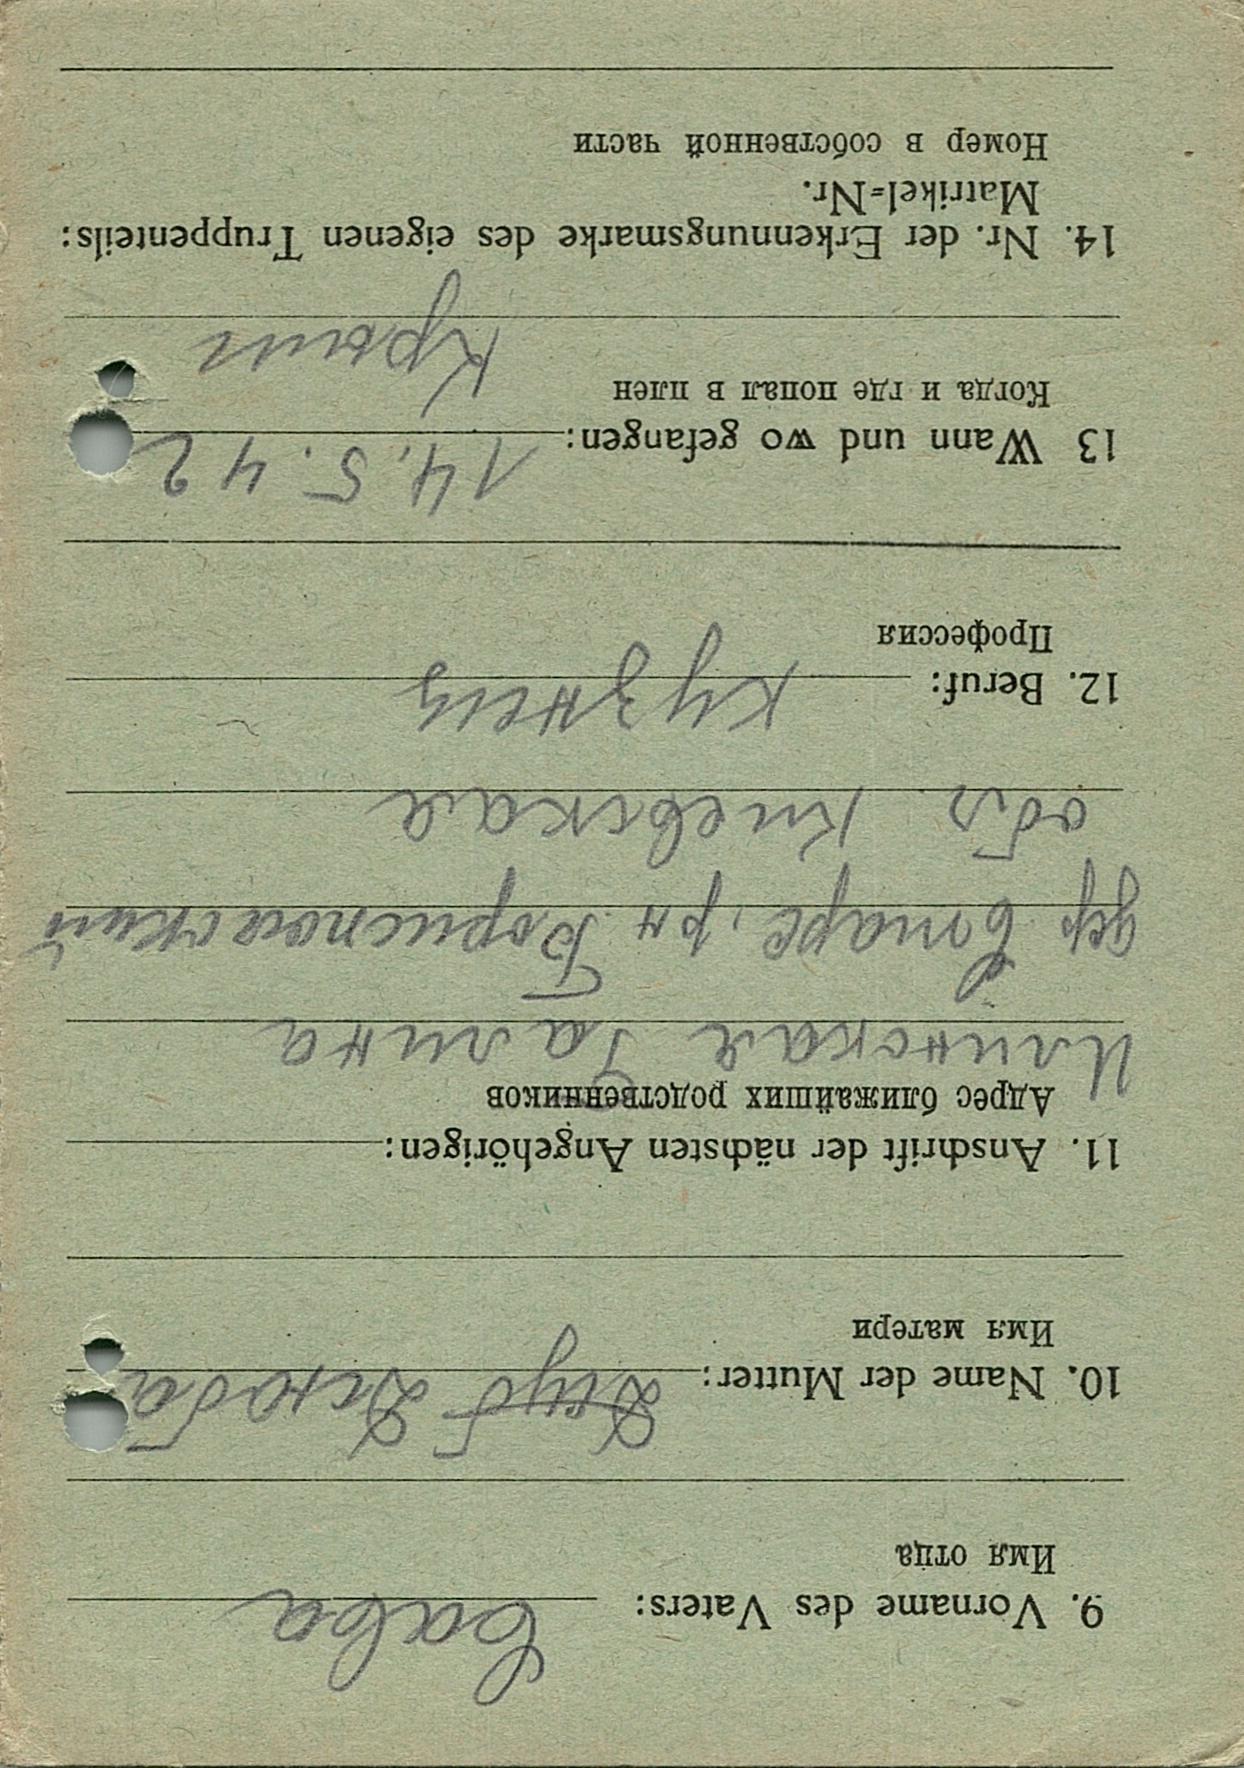 9. Vorname des Vaters: Сава
Имя отца
10. Name der Mutter: Дзюба
Имя матери
11. Anschrift der nächsten Angehörigen:
Адрес ближайших родственников
Илинская Галина
дер , рн Бориспольский
обл Киевская
12. Beruf: кузнец
Профессия
13 Wann und wo gefangen: 14.5.42
Когда и где попал в плен
Крым
14. Nr. der Erkennungsmarke des eigenen Truppenteils:
Matrikel=Nr.
Номер в собственной части